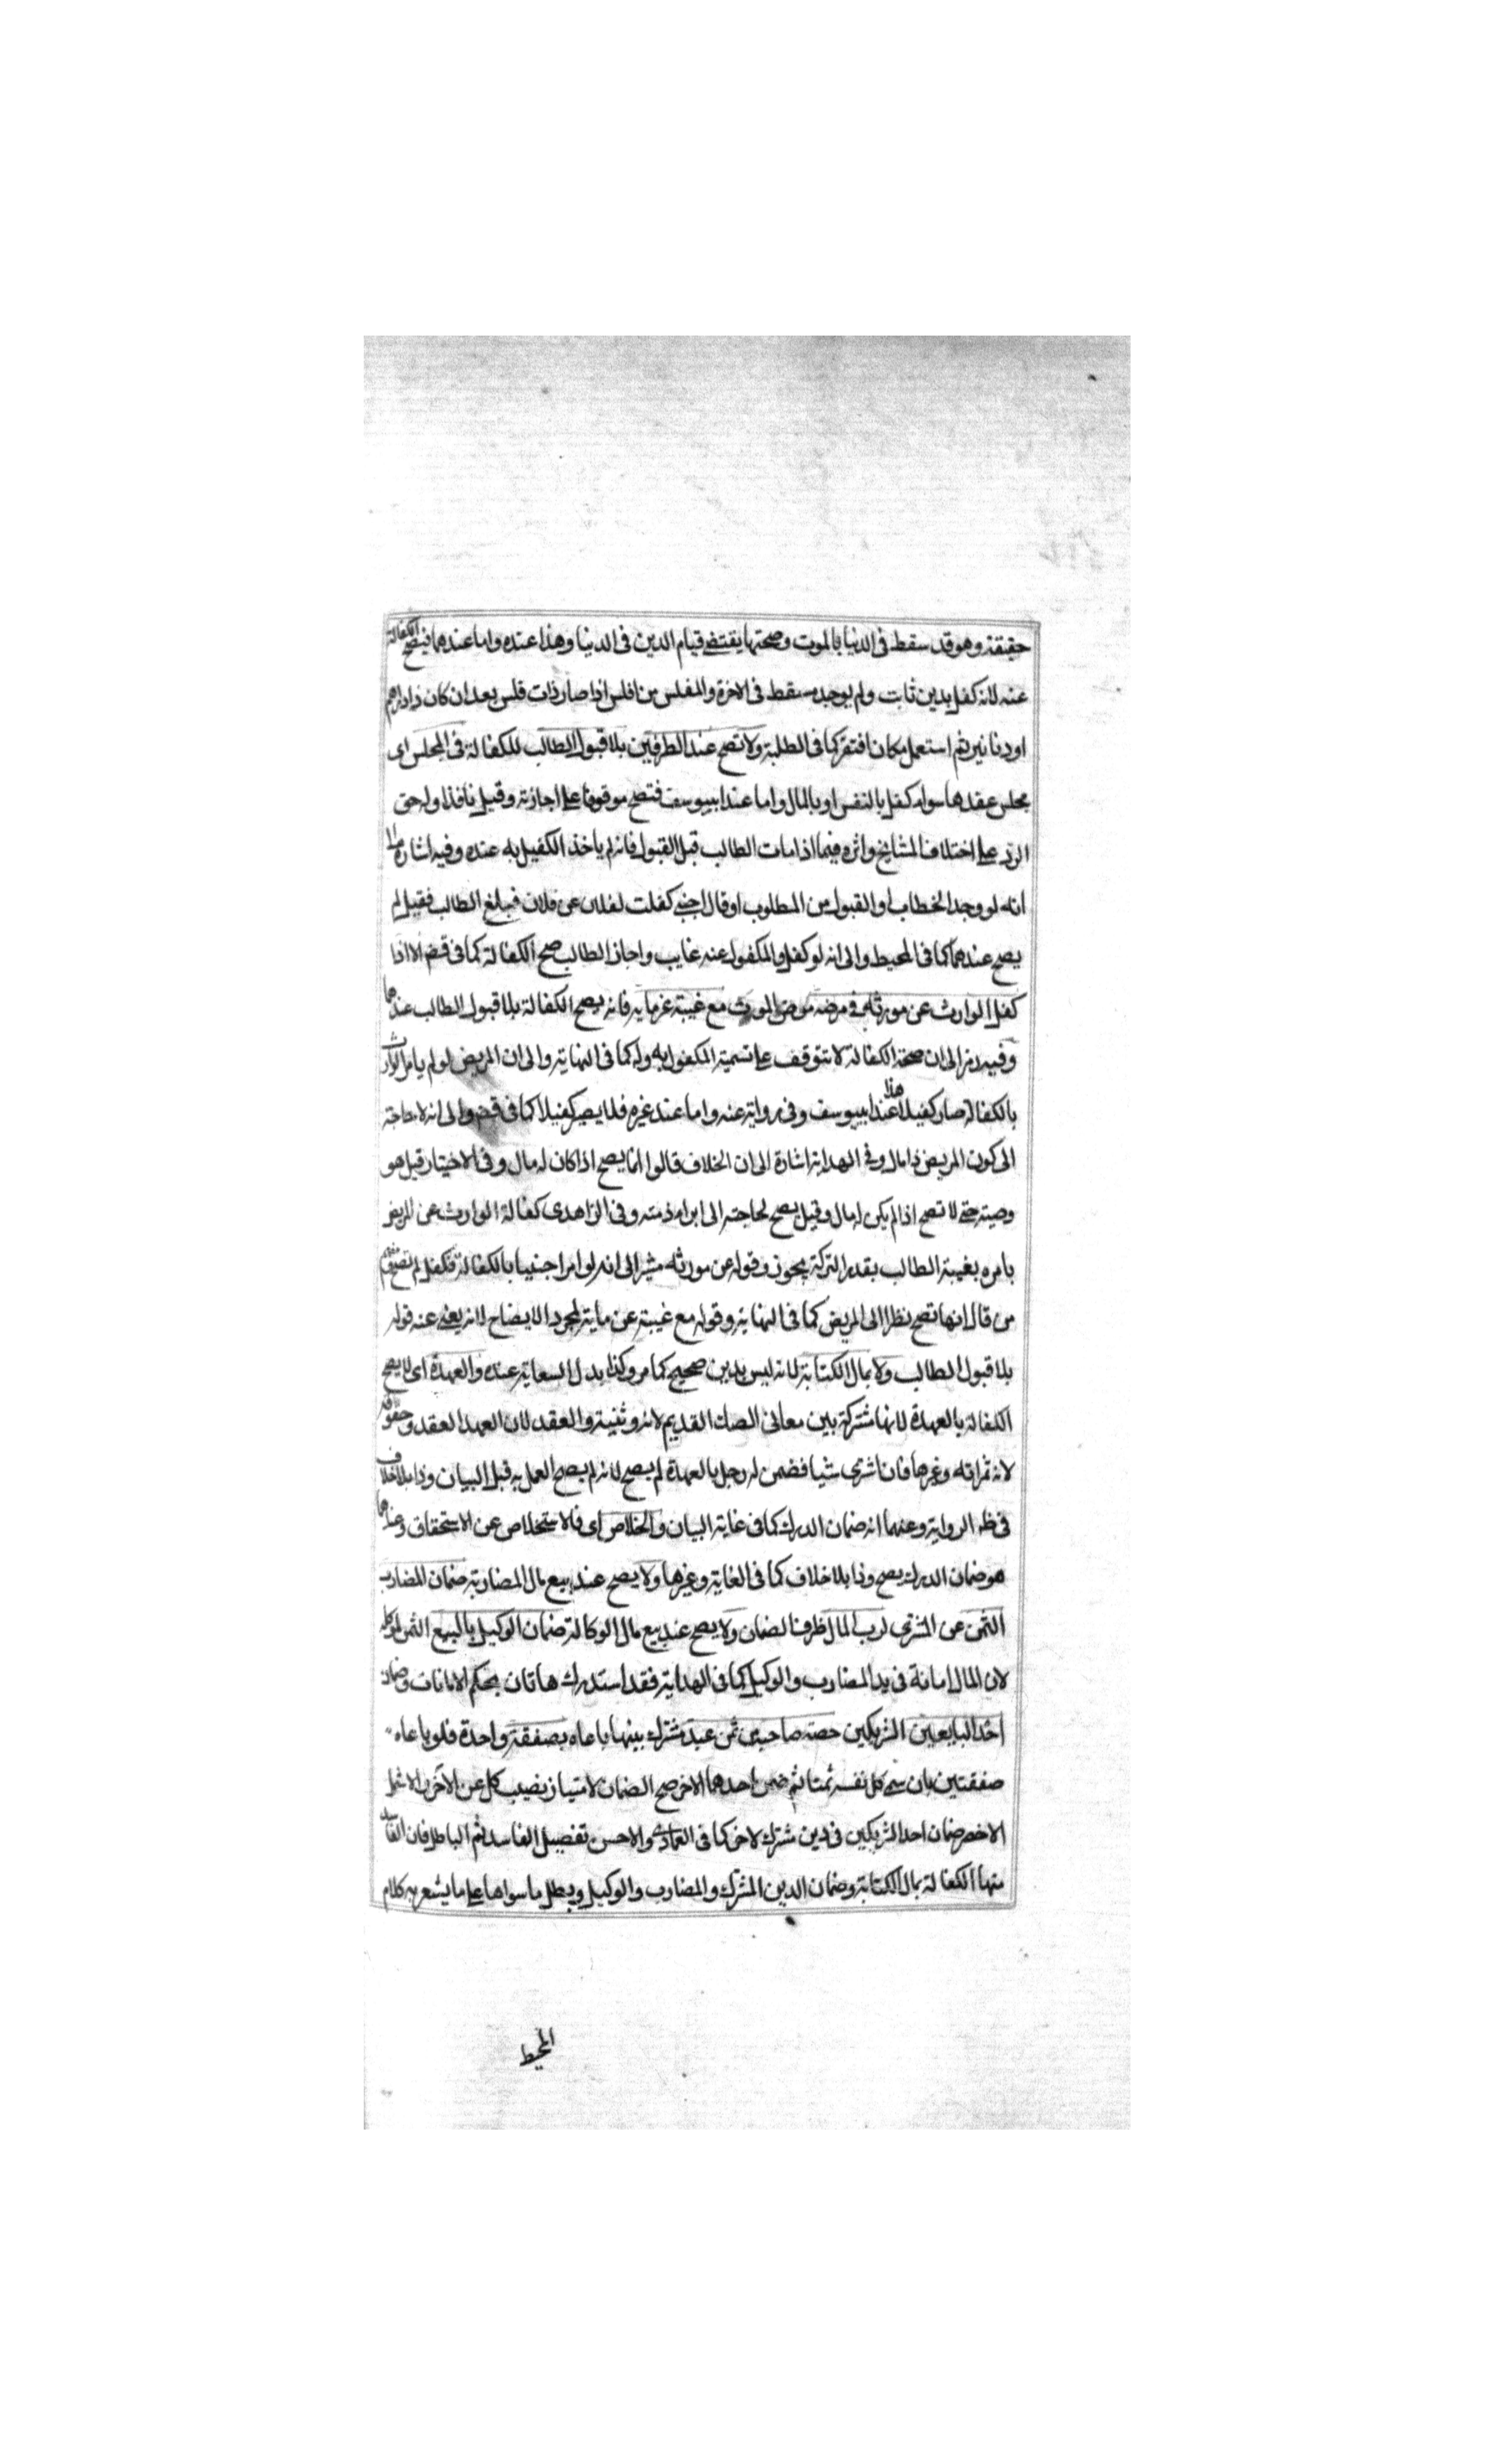 حقيقة وهو قد سقط فى الدنيا بالموت وصحتها يقتضى قيام الدين فى الدنيا وهذا عنده واما عندهما فيصح الكفالة
عنه لانه كفل بدين ثابت ولم يوجد مسقط فى الاخرة والمفلس من افلس اذا صار ذات فلس بعد ان كان ذا دراهم
او دنانير ثم استعمل مكان افتقر كما فى الطلبة ولا تصح عند الطرفين بلا قبول الطالب للكفالة فى المجلس اى
مجلس عقدها سواء كفل بالنفس او بالمال واما عند ابيوسف فتصح موقوفا على اجازته وقيل نافذا وله حق
الرد على اختلاف المشايخ واثره فيما اذا مات الطالب قبل القبول فانه لم ياخذ الكفيل به عنده وفيه اشارة الى
انه لو وجد الخطاب او القبول من المطلوب او قال اجنبى كفلت لفلان عن فلان فبلغ الطالب فقبل لم
يصح عندهما كما فى المحيط والى انه لو كفل والمكفول عنه غايب واجاز الطالب صح الكفالة كما فى قض الا اذا
كفل الوارث عن مورثه فى مرضه مرض الموت مع غيبة غرمايه فانه يصح الكفالة بلا قبول الطالب عندهما
وفيه رمز الى ان صحة الكفالة لا تتوقف على تسمية المكفول به وله كما فى النهاية والى ان المريض لو لم يامر الوارث
بالكفالة صار كفيلا هذا عند ابيوسف وفى رواية عنه واما عند غيره فلا يصير كفيلا كما فى قض والى انه لا حاجة
الى كون المريض ذا مال وفى الهداية اشارة الى ان الخلاف قالوا انما يصح اذا كان له مال وفى الاختيار قيل هو
وصية حتى لا تصح اذا لم يكن له مال وقيل يصح لحاجته الى ابراء ذمته وفى الزاهدى كفالة الوارث عن المريض
بامره بغيبة الطالب بقدر التركة يجوز وقوله عن مورثه مشير الى انه لو امر اجنبيا بالكفالة فكفل لم تصح
من قال انها تصح نظرا الى المريض كما فى النهاية وقوله مع غيبة عن مايته لمجرد الايضاح لانه يغنى عنه قوله
بلا قبول الطالب ولا بمال الكتابة لانه ليس بدين صحيح كما مر وكذا بدل السعاية عنده والعهدة اى لا يصح
الكفالة بالعهدة لانها مشتركة بين معانى الصك القديم لانه وثيقة والعقد لان العهد العقد وحقوقه
لانه ثمراته وغيرها فان اشترى شيا فضمن له رجل بالعهدة لم يصح لانه لم يصح العمل به قبل البيان وذا بلا خلاف
فى ظه الرواية وعنهما انه ضمان الدرك كما فى غاية البيان والخلاص اى فالاستخلاص عن الاستحقاق وعندهما
هو ضمان الدرك يصح وذا بلا خلاف كما فى الغاية وغيرها ولا يصح عند بيع مال المضاربة ضمان المضارب
الثمن عن المشترى لرب المال ظرف الضمان ولا يصح عند بيع مال الوكالة ضمان الوكيل بالبيع الثمن لموكله
لان المال امانة فى يد المضارب والوكيل كما فى الهداية فقد استدرك هاتان بحكم الامانات وضمان
احد البايعين الشريكين حصة صاحبه من ثمن عبد مشترك بينهما باعاه بصفقة واحدة فلو باعاه
صفقتين بان سمى كل نفسه ثمنا ثم ضمن احدهما الاخر صح الضمان لامتياز نصيب كل عن الآخر والاشمل
الاخصر ضمان احد الشريكين فى دين مشترك لاخر كما فى العمادى والاحسن تفصيل الفاسد ثم الباطل فان الفاسد
منها الكفالة بمال الكتابة وضمان الدين المشترك والمضارب والوكيل ويبطل ما سواها على ما يشعر به كلام
المحيط